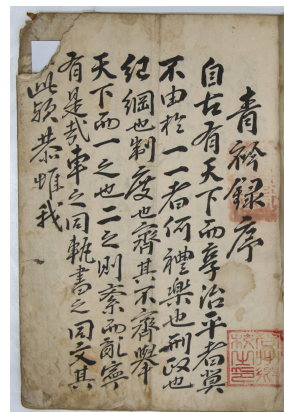 青衿錄序
自古有天下而享治平者莫
不由於一一者何禮樂也刑政也
紀綱也制度也齊其不齊擧
天下而一之也二之則紊而亂寧
有是哉車之同軌書之同文其
此歟恭惟我